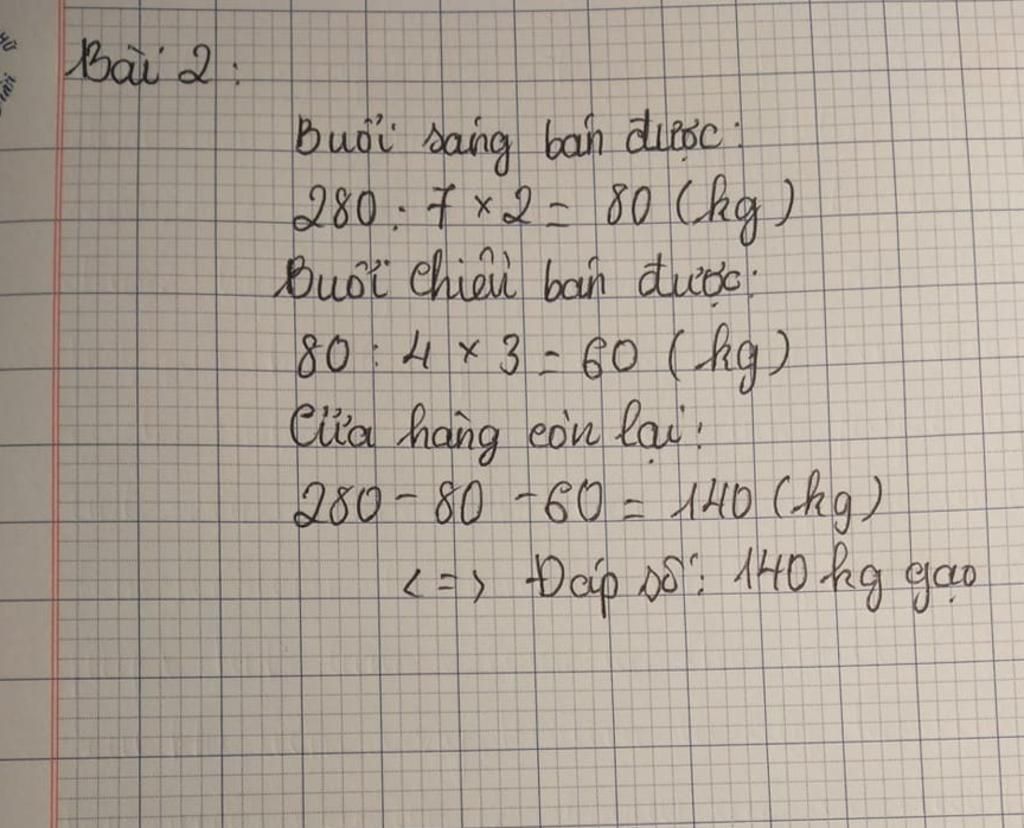 Bài 2:
Buổi sáng bán được:
280 : 7 × 2 = 80 (kg)
Buổi chiều bán được:
80 : 4 × 3 = 60 (kg)
Cửa hàng còn lại:
280 - 80 - 60 = 140 (kg)
<=> Đáp số: 140 kg gạo